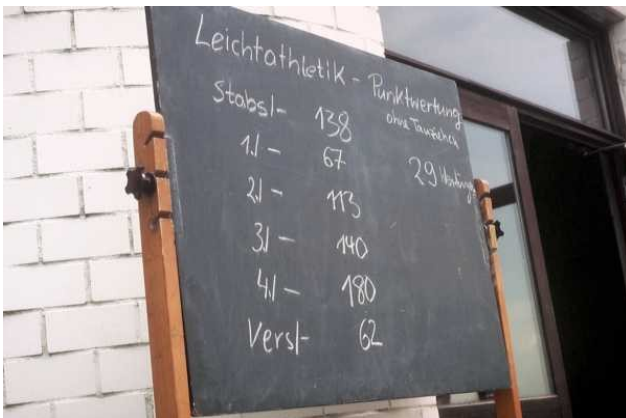 Leichtathletik - Punktwertung
ohne Tauziehen
Stabs/- 138
1./- 67
29
2./- 113
3./- 140
4./- 180
Vers/- 62